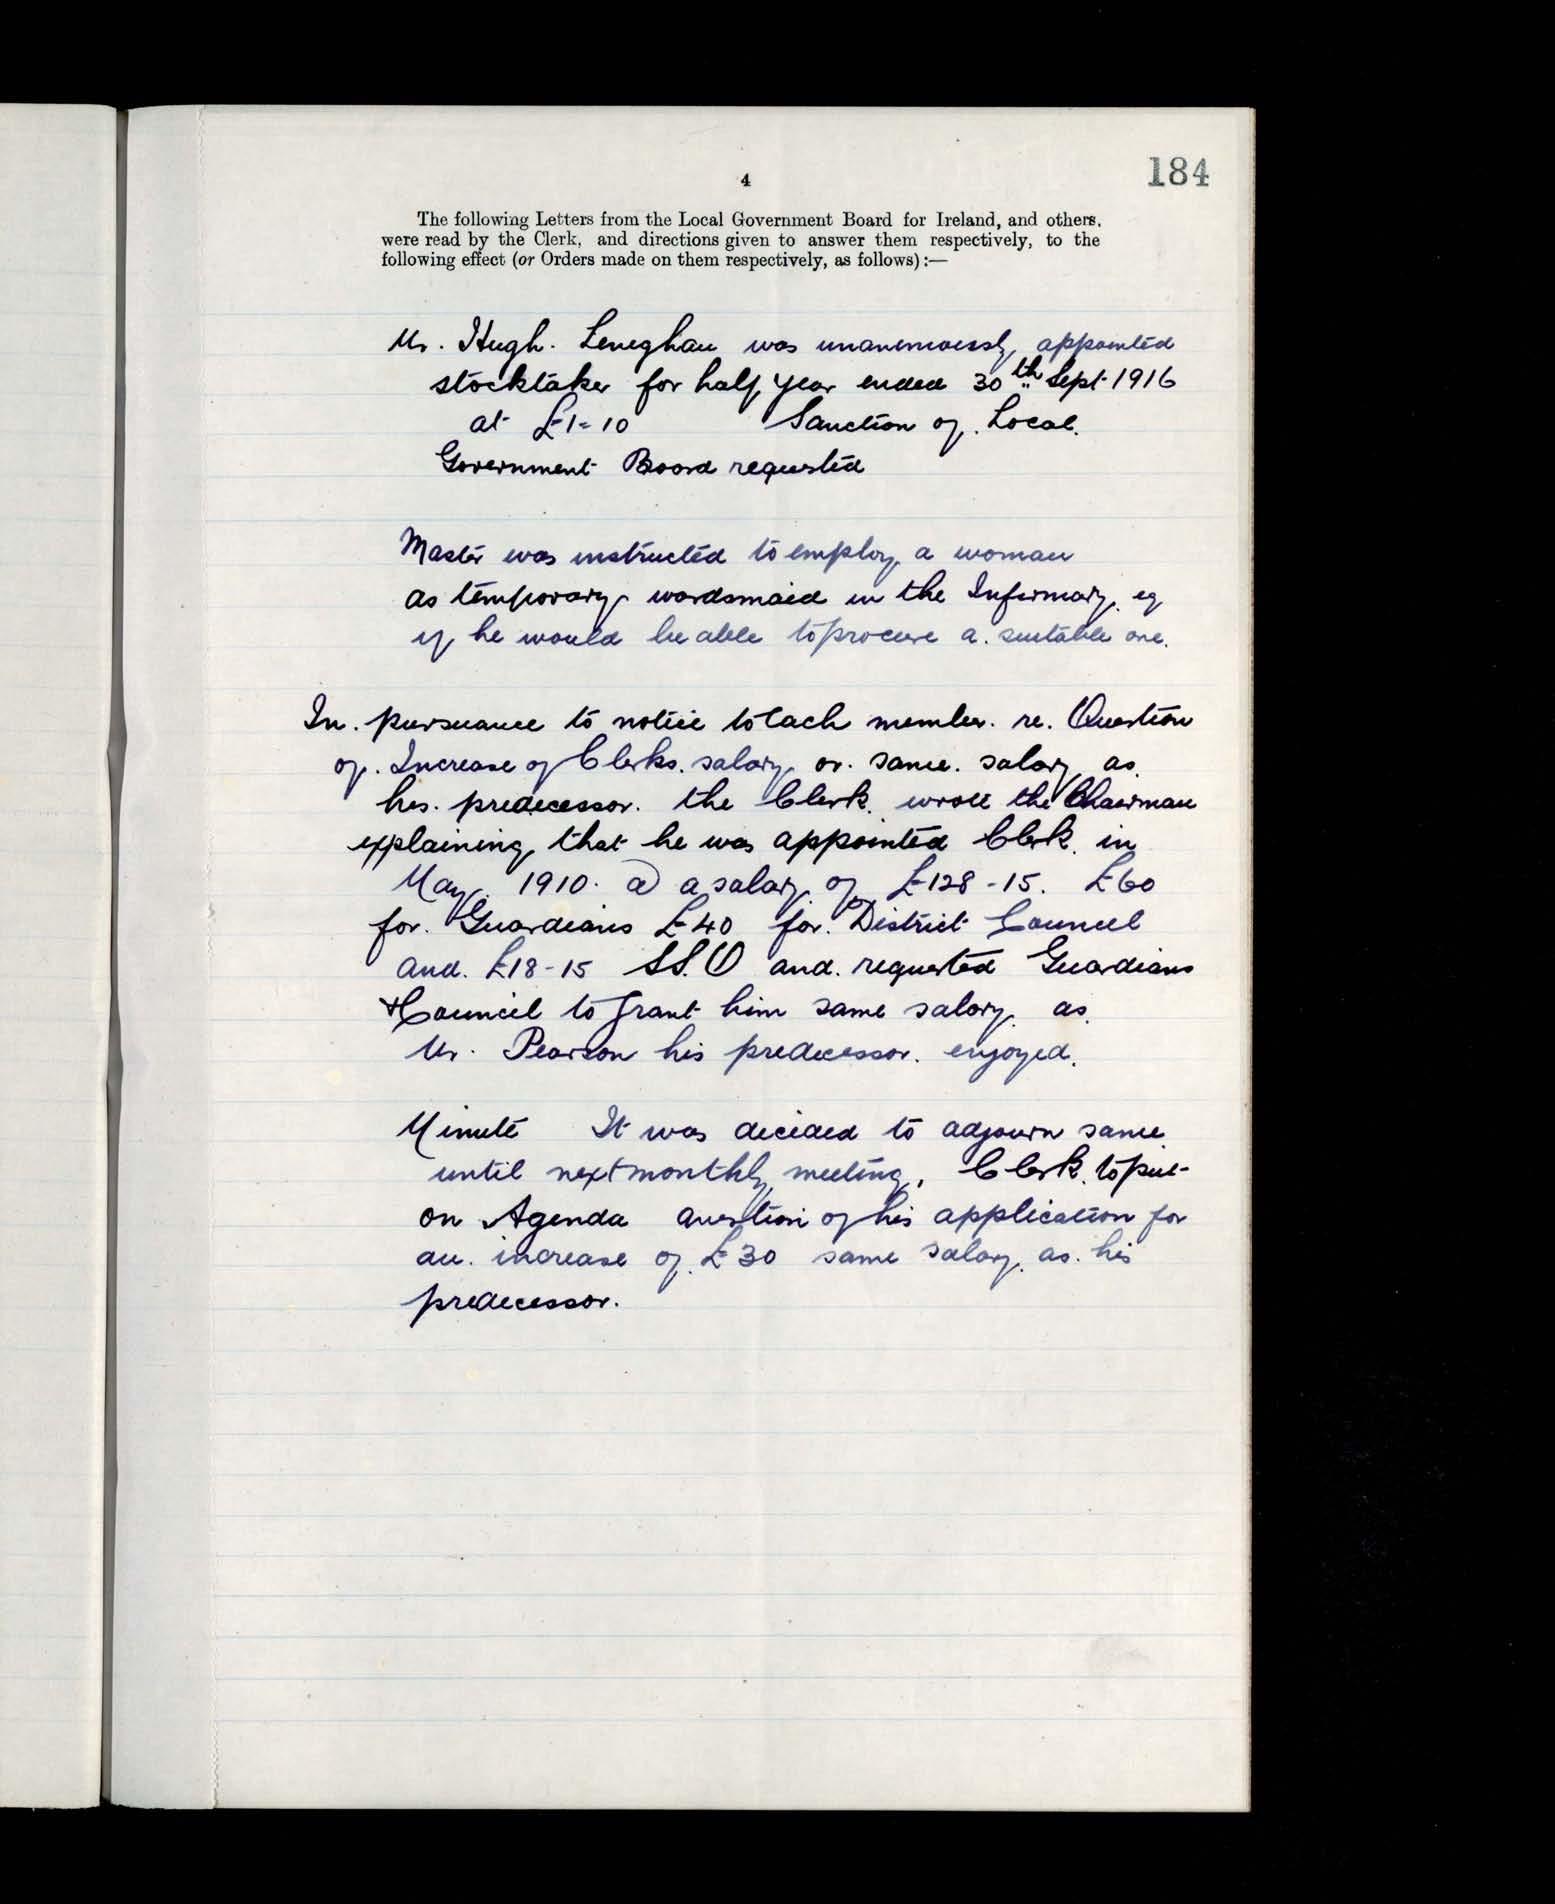 184
4
The following Letters from the Local Government Board for Ireland, and others,
were read by the Clerk, and directions given to answer them respectively, to the
following effect (or Orders made on them respectively, as follows):—
Mr. Hugh. Leneghan was unanimously appointed
stocktaker for half year ended 30th Sept. 1916
at £1=10 Sanction of. Local.
Government Board requested
Master was instructed to employ a woman
as temporary wardsmaid in the Infirmary. eg
if he would be able to procure a. suitable one.
In. pursuance to notice to each member. re. Question
of. Increase of Clerks. salary. or. same. salary as.
his. predecessor. the Clerk. wrote the Chairman
explaining that he was appointed Clerk. in
May. 1910. @ a salary. of £128-15. £60
for. Guardians £40 for. District Council
and. £18-15 SS.O and. requested Guardians
& Council to grant him same salary. as.
Mr. Pearson his predecessor. enjoyed.
Minute It was decided to adjourn same
until next monthly meeting, Clerk. to put
on Agenda question of his application for
an. increase of. £30 same salary. as. his
predecessor.